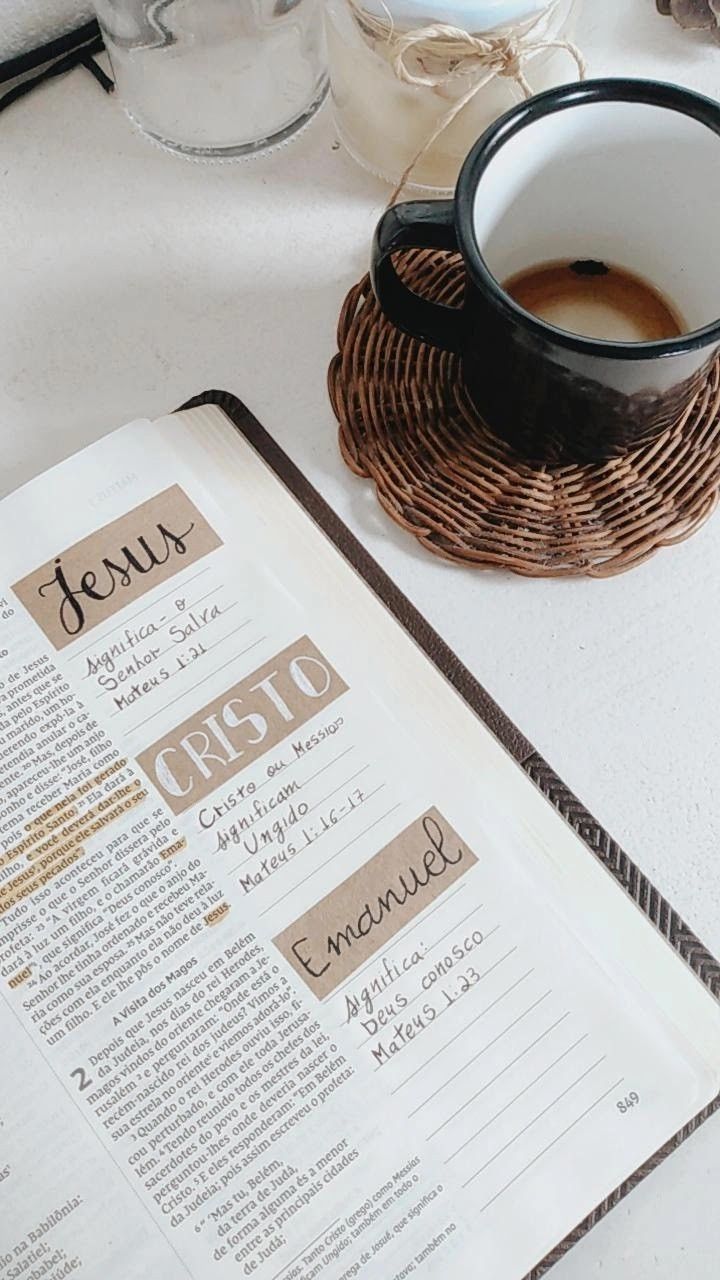 de Jesus
prometida
antes que se
pelo Espírito
marido, um ho-
expô-la à
anular o ca-
Mas, depois de
apareceu-lhe um anjo
e disse: "José, filho
receber Maria como
pois o que nela foi gerado
Espírito Santo. 21 Ela dará à
e você deverá dar-lhe o
Jesus, porque ele salvará o seu
os seus pecados".
tudo isso aconteceu para que se
o que o Senhor dissera pelo
profeta: 23 "A virgem ficará grávida e
dará à luz um filho, e o chamarão Ema-
nuel", que significa "Deus conosco".
24 Ao acordar, José fez o que o anjo do
Senhor lhe tinha ordenado e recebeu Ma-
ria como sua esposa. 25 Mas não teve rela-
ções com ela enquanto ela não deu à luz
um filho. E ele lhe pôs o nome de Jesus.
A Visita dos Magos
2 Depois que Jesus nasceu em Belém
da Judeia, nos dias do rei Herodes,
magos vindos do oriente chegaram a Je-
rusalém 2 e perguntaram: "Onde está o
recém-nascido rei dos judeus? Vimos a
sua estrela no oriente e viemos adorá-lo".
3 Quando o rei Herodes ouviu isso, fi-
cou perturbado, e com ele toda Jerusa-
lém. 4 Tendo reunido todos os chefes dos
sacerdotes do povo e os mestres da lei,
perguntou-lhes onde deveria nascer o
Cristo. 5 E eles responderam: "Em Belém
da Judeia; pois assim escreveu o profeta:
6 " 'Mas tu, Belém,
da terra de Judá,
de forma alguma és a menor
entre as principais cidades
de Judá;
Tanto Cristo (grego) como Messias
Ungido; também em todo o
de Josué, que significa o
também no
na Babilônia:
Jesus
Significa - o
Senhor Salva
Mateus 1:21
CRISTO
Cristo ou Messias
significam
Ungido
Mateus 1:16-17
Emanuel
Significa:
Deus conosco
Mateus 1:23
849